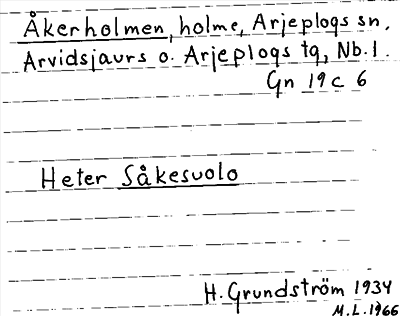 Åkerholmen, holme, Arjeplogs sn,
Arvidsjaurs o. Arjeplogs tg, Nb.l.
Gn 19c 6
Heter Såkesuolo
H. Grundström 1934
M.L. 1966